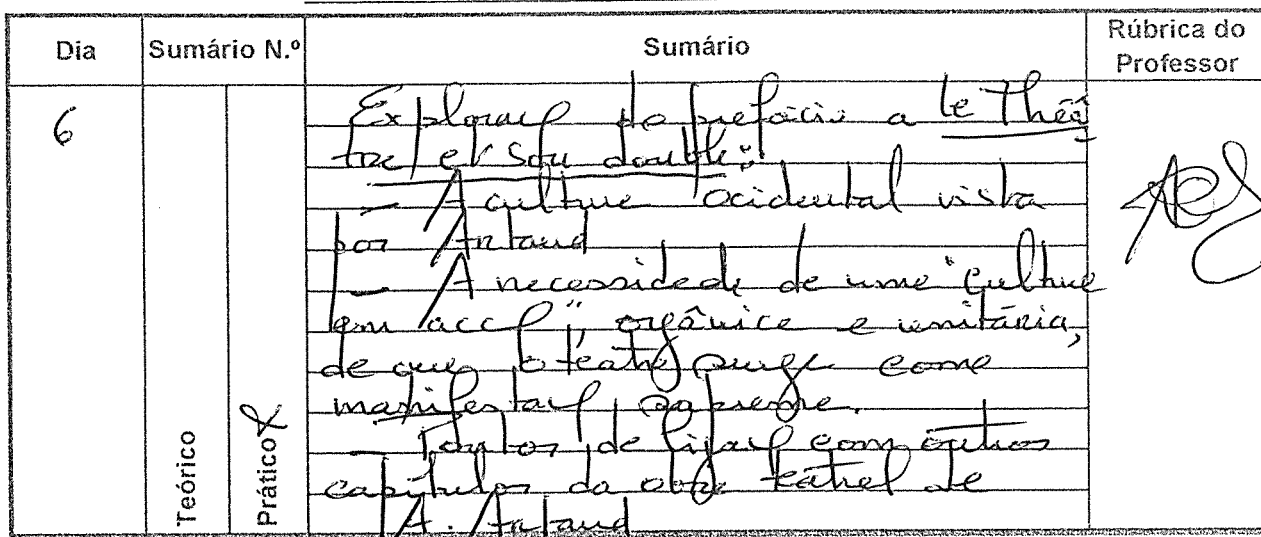 Dia Sumário N.º Sumário Rúbrica do Professor
6
Exploração do prefácio a Le Théâ
tre et son double:
— A culture ocidental vista
por Artaud
— A necessidade de uma "culture
em acção", orgânica e unitária,
de que o teatro surge como
manifestação suprema.
— Pontos de ligação com outros
capítulos da obra teatral de
A. Artaud
Teórico
Prático X